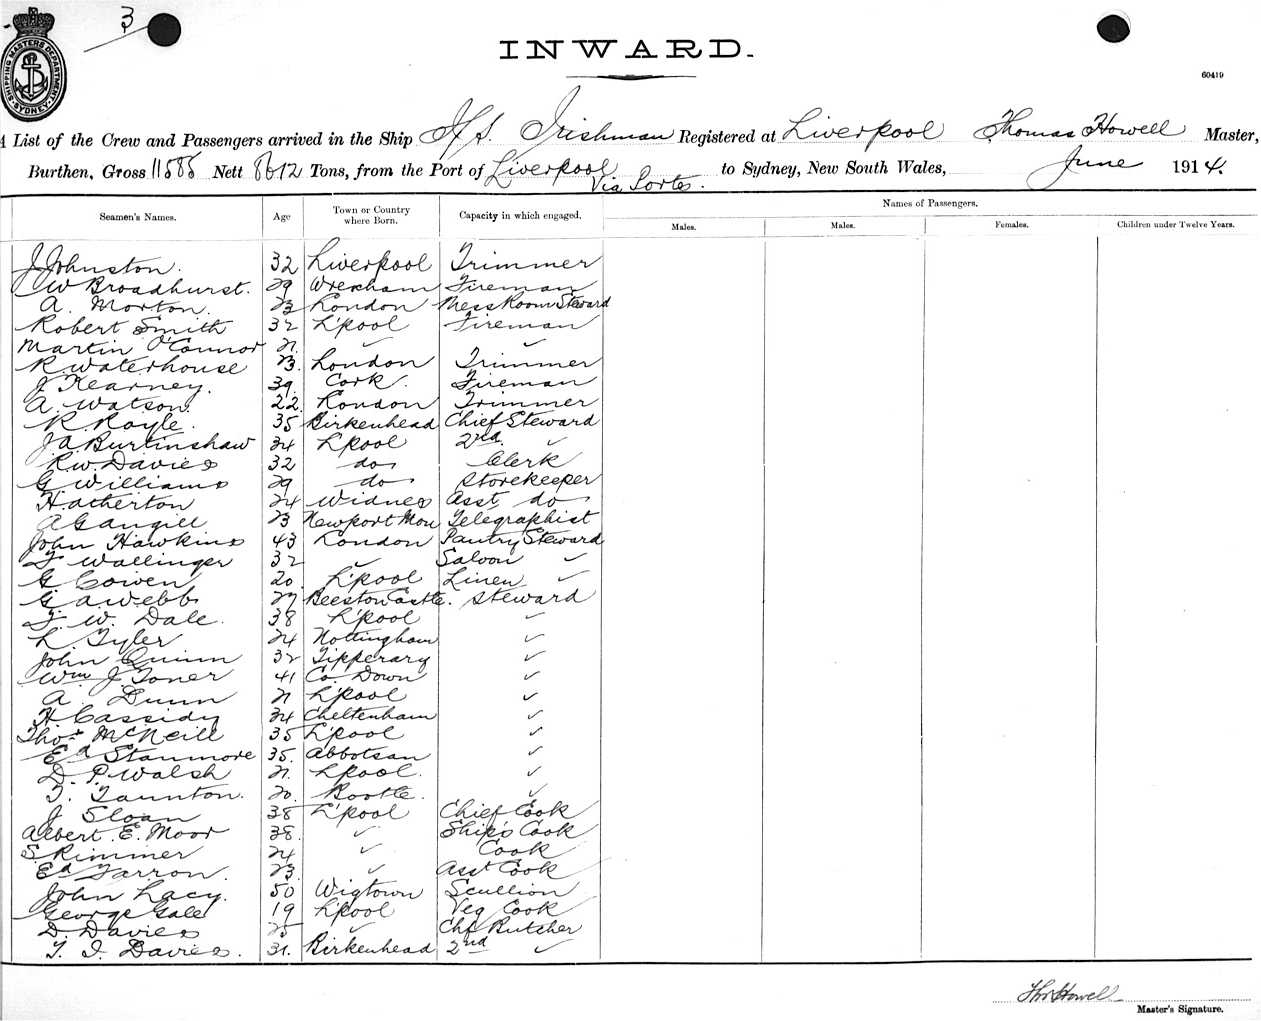 3
SHIPPING MASTERS DEPARTMENT SYDNEY
INWARD.
60419
A List of the Crew and Passengers arrived in the Ship Irishman Registered at Liverpool Thomas Howell Master,
Burthen, Gross 11585 Nett 8612 Tons, from the Port of Liverpool Via Portes. to Sydney, New South Wales, June 1914.
Seamen's Names. Age Town or Country where Born. Capacity in which engaged. Names of Passengers.
Males. Males. Females. Children under Twelve Years.
J Johnston. 32 Liverpool Trimmer
W Broadhurst. 29 Wrexham Fireman
A. Morton. 23 London Mess Room Steward
Robert Smith 32 L'pool Fireman
Martin O'Connor 21. ✓ ✓
R Waterhouse 23. London Trimmer
J Kearney. 39. Cork. Fireman
A. Watson. 22. London Trimmer
R Royle. 35 Birkenhead Chief Steward
J A Burtinshaw 34 L'pool 2nd ✓
R. W. Davies 32 do Clerk
G Williams 29 do Storekeeper
H Atherton 24 Widnes Asst do
A Gangill 23 Newport Mon Telegraphist
John Hawkins 43 London Pantry Steward
F Wallinger 32 ✓ Saloon ✓
G Cowen 20. L'pool Linen ✓
G A Webb 27 Beeston Castle. Steward
F. W. Dale. 38 L'pool ✓
L. Tyler 24 Nottingham ✓
John Quinn 32 Tipperary ✓
Wm J Toner 41 Co. Down ✓
A. Dunn 21 L'pool ✓
H Cassidy 34 Cheltenham ✓
Thos McNeill 35 L'pool ✓
Ed Stanmore 35. Abbotsan ✓
D. P. Walsh 21. L'pool. ✓
T. Taunton. 20. Bootle. ✓
J Sloan 38 L'pool Chief Cook
Albert. E. Moor 38. ✓ Ship's Cook
S. Rimmer 24 ✓ Cook
Ed Farron. 23. ✓ Asst Cook
John Lacy. 50 Wigtown Scullion
George Gale 19 L'pool Veg Cook
D. Davies 25 ✓ Chf Butcher
T. I. Davies. 31. Birkenhead 2nd ✓
Thos Howell
Master's Signature.